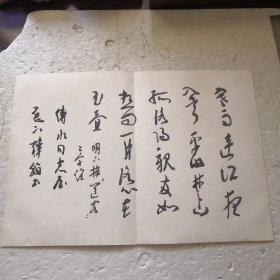 寒雨連江夜
入吳平明楚山
孤洛陽親友如
相問一片冰心在
玉壺
明下掉送客
二字
同志